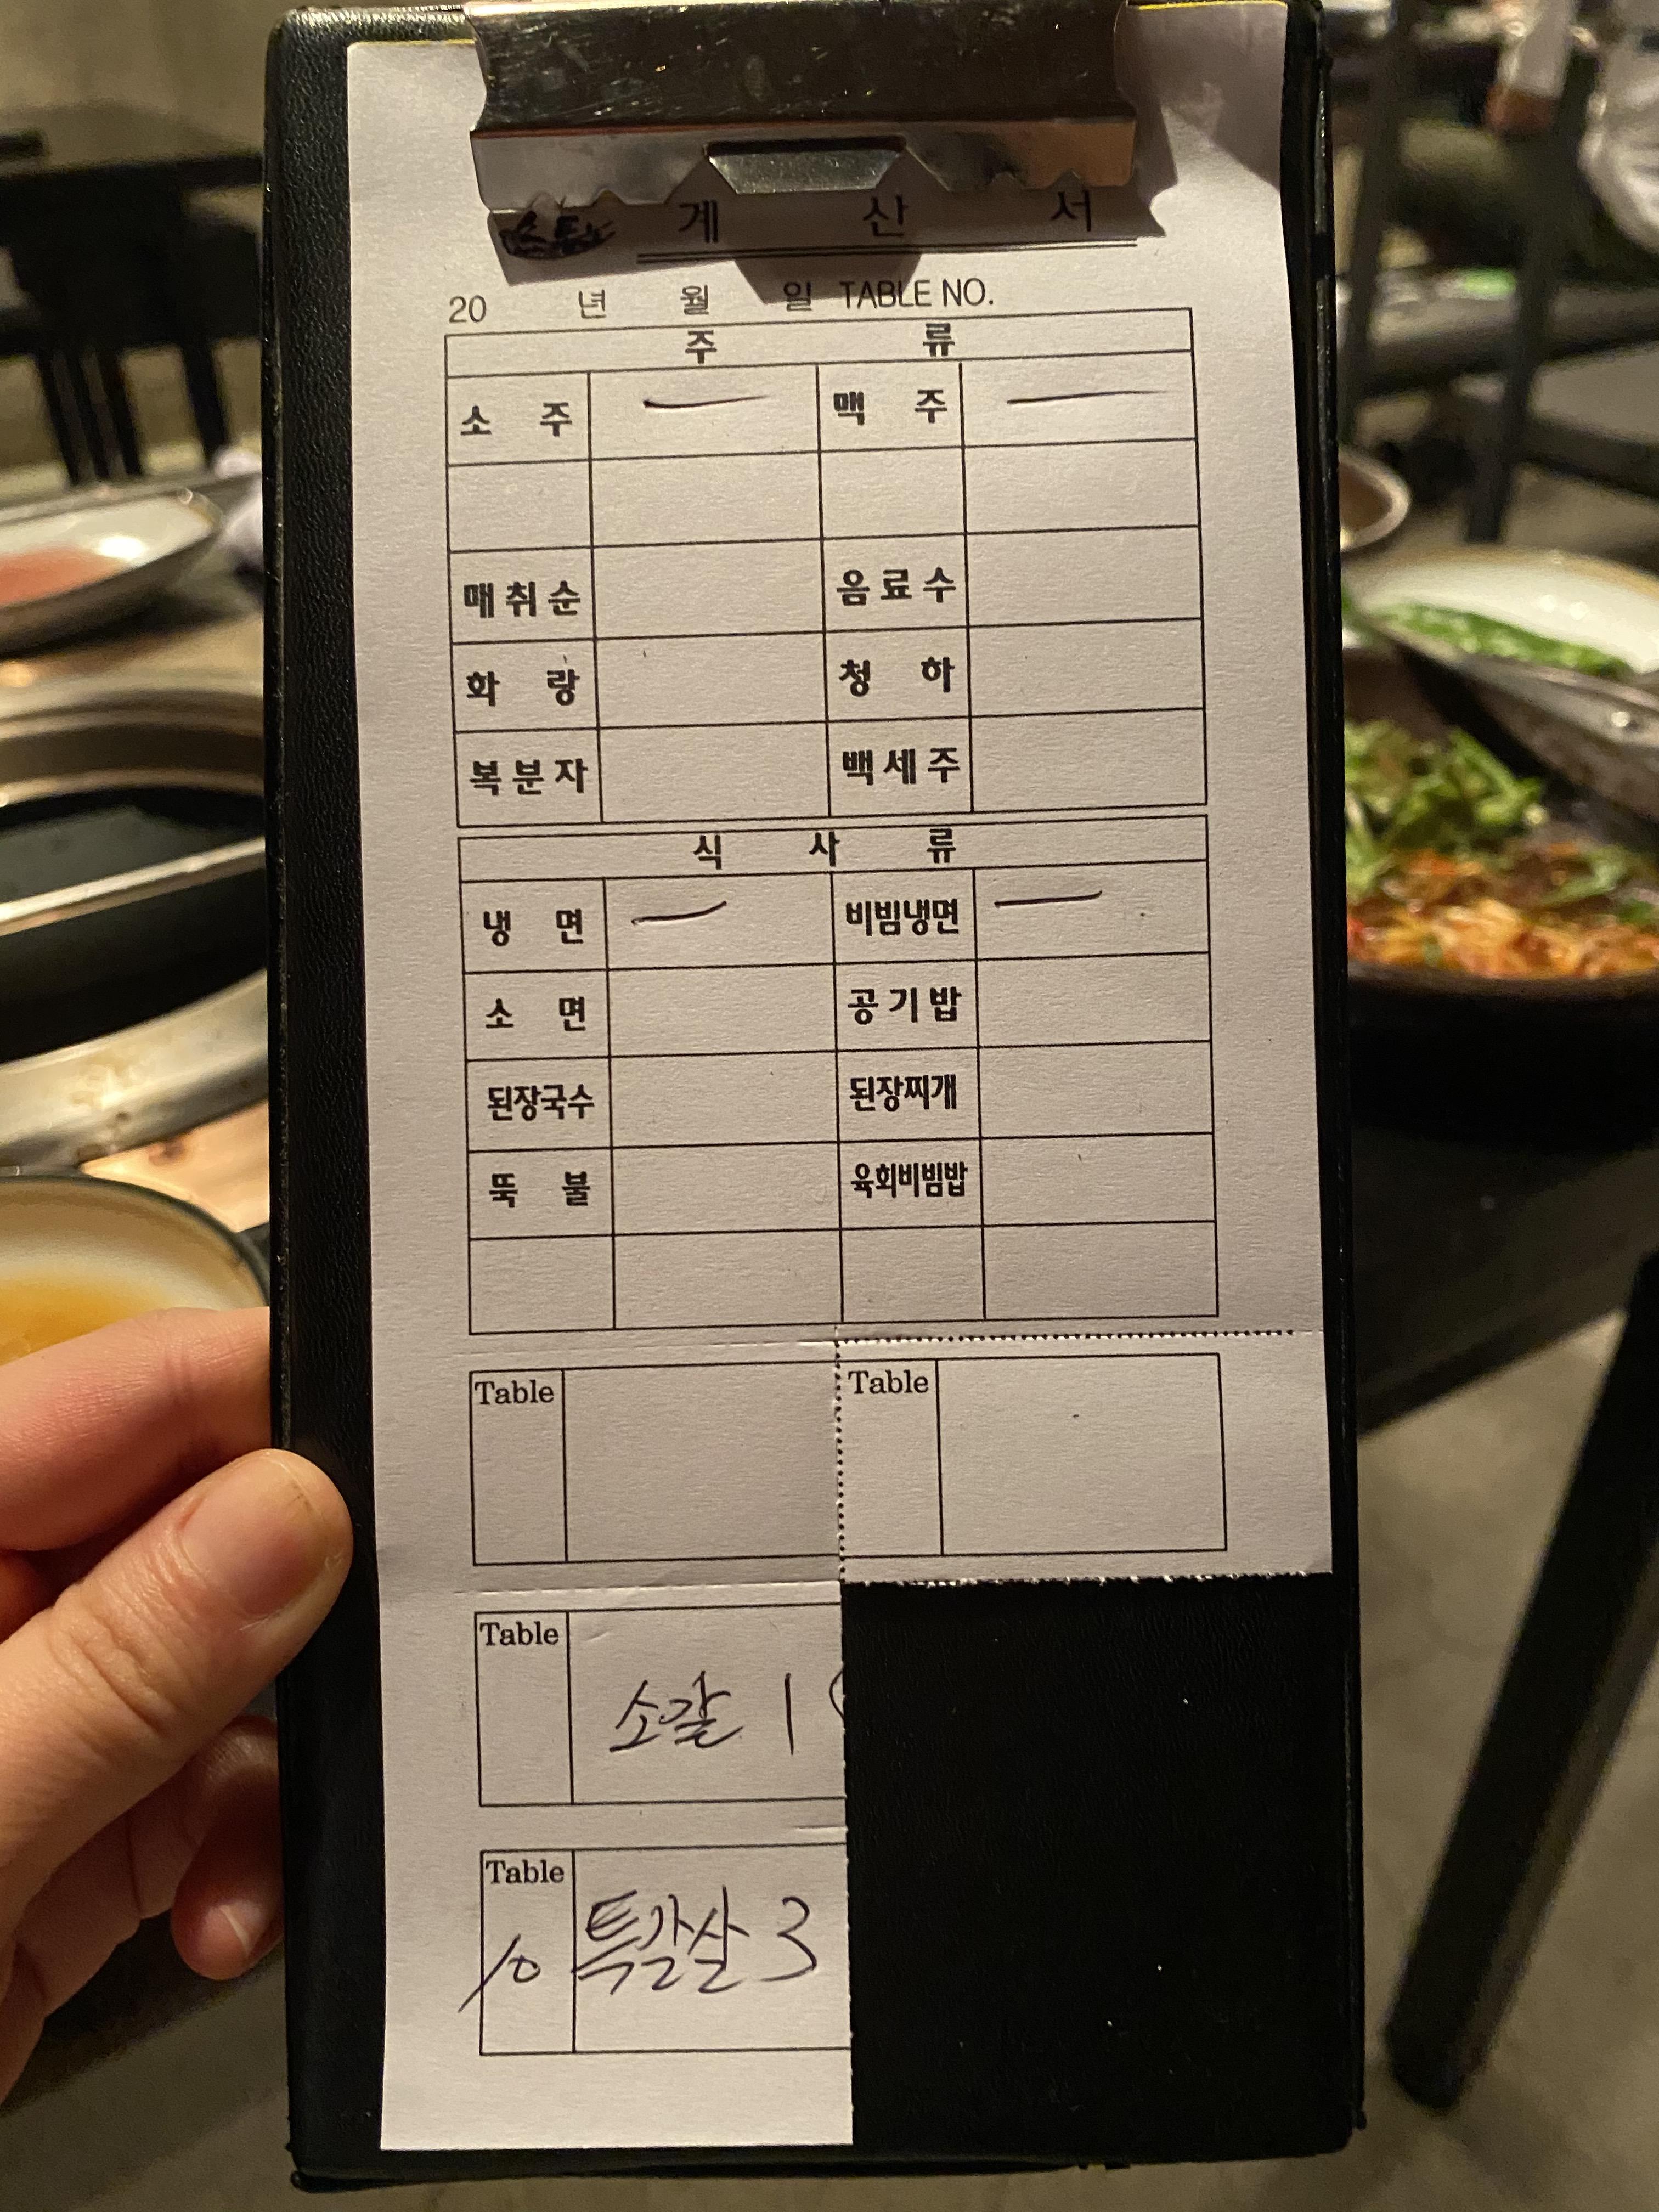 계 산 서
20 년 월 일 TABLE NO.
주 류
소 주 — 맥 주 —
매취순 음료수
화 랑 청 하
복분자 백세주
식 사 류
냉 면 — 비빔냉면 —
소 면 공기밥
된장국수 된장찌개
뚝 불 육회비빔밥
Table Table
Table 소갈 1
Table 10 특갈살 3